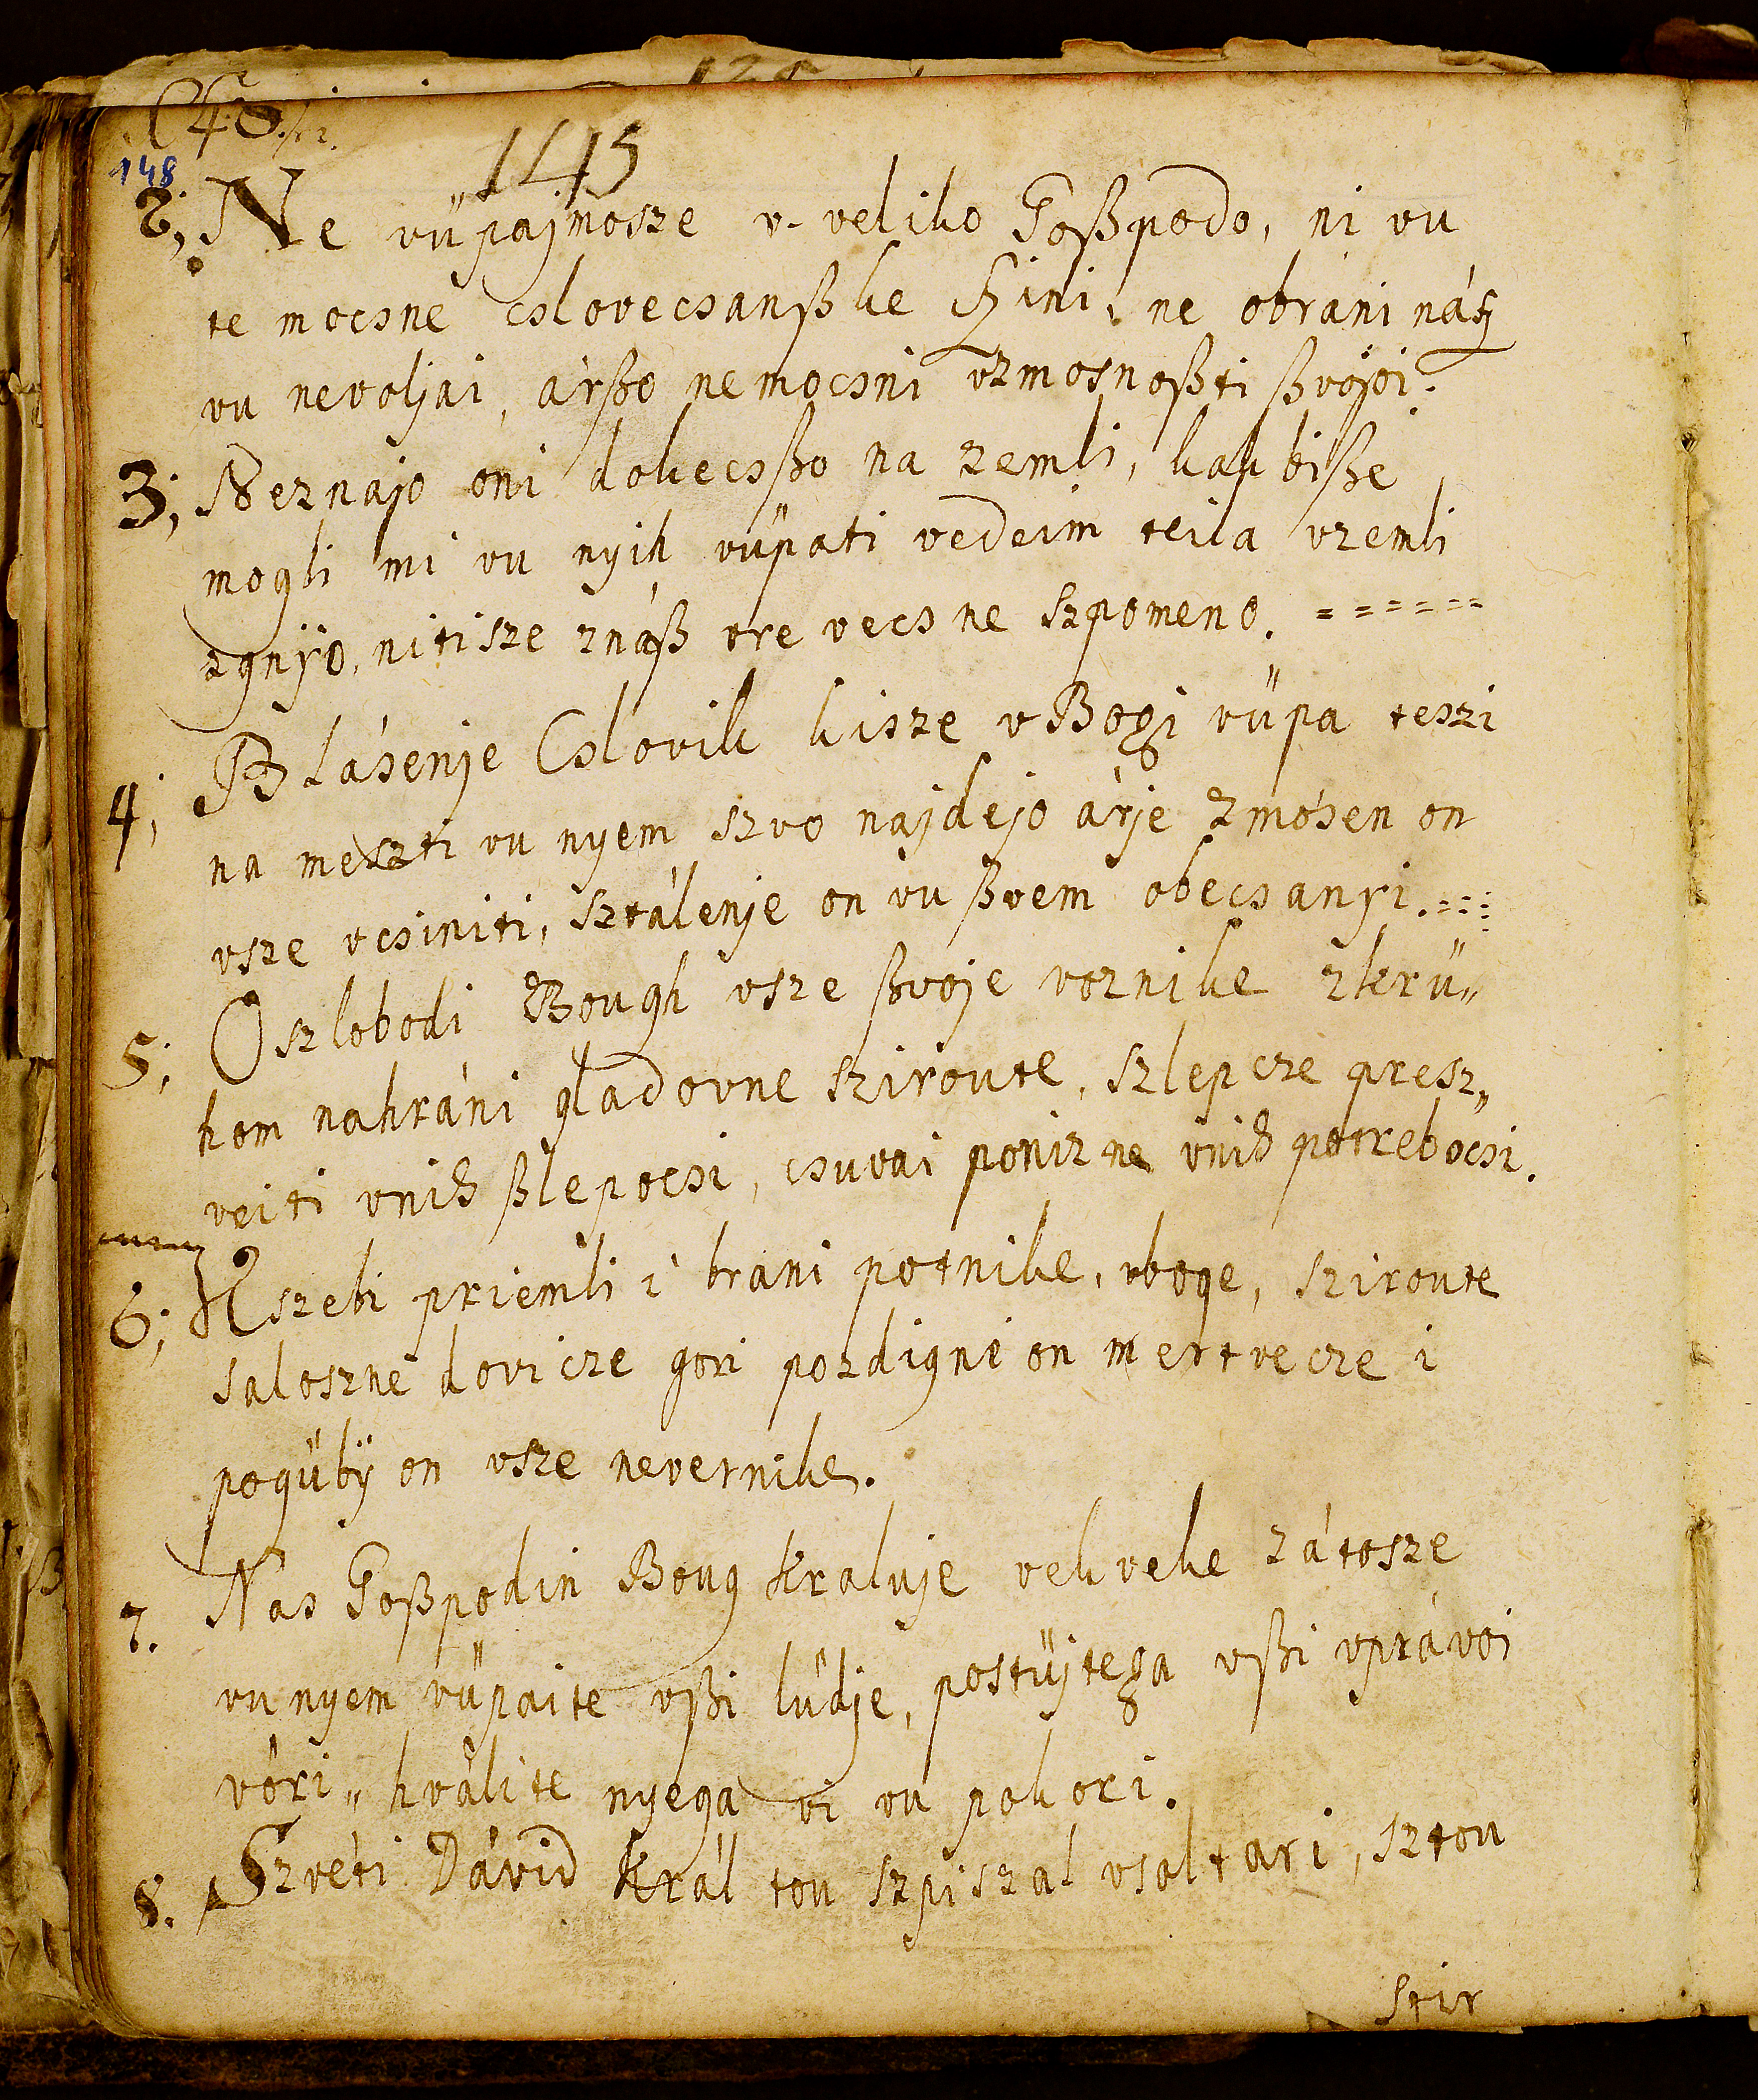 148
145
2; Ne vüpajmosze v- veliko Goßpodo, ni vu
te mocsne cslovecsanßke szini, ne obráni nász
vu nevoljai, árßo nemocsni vzmosnoßti ßvojoi.
3; Neznajo oni dokecsßo na zemli, kak biße
mogli mi vu nyih vüpati vedeim teila vzemli
zgnÿo, nitisze znáß vre vecs ne szpomeno. ======
4; Blásenje Cslovik kisze v Bogi vüpa teszi
na meszti vu nyem szvo najdejo árje zmósen on
vsze vcsiniti, sztálenje on vu ßvem obecsanyi.
5; Oszlobodi Bough vsze ßvoje voznike zkrü„
hom nahráni gladovne szirovte, szlepcze presz„
veiti vnih ßlepocsi, csuvai ponizne vnih potrebocsi.
6; Kszebi priemli i brani potnike, vboge, szirovte
saloszne dovicze gori pozdigne on mertvecze i
pogübÿ on vsze nevernike.
7. Nas Goßpodin Boug Kraluje vekveke zátosze
vu nyem vüpaite vßi lüdje, postüjtega vßi vprávoi
vöri„ hválite nyega vi vu pokori.
8. Szvéti Dávid Král tou szpiszal vsaltari, sztou
stir